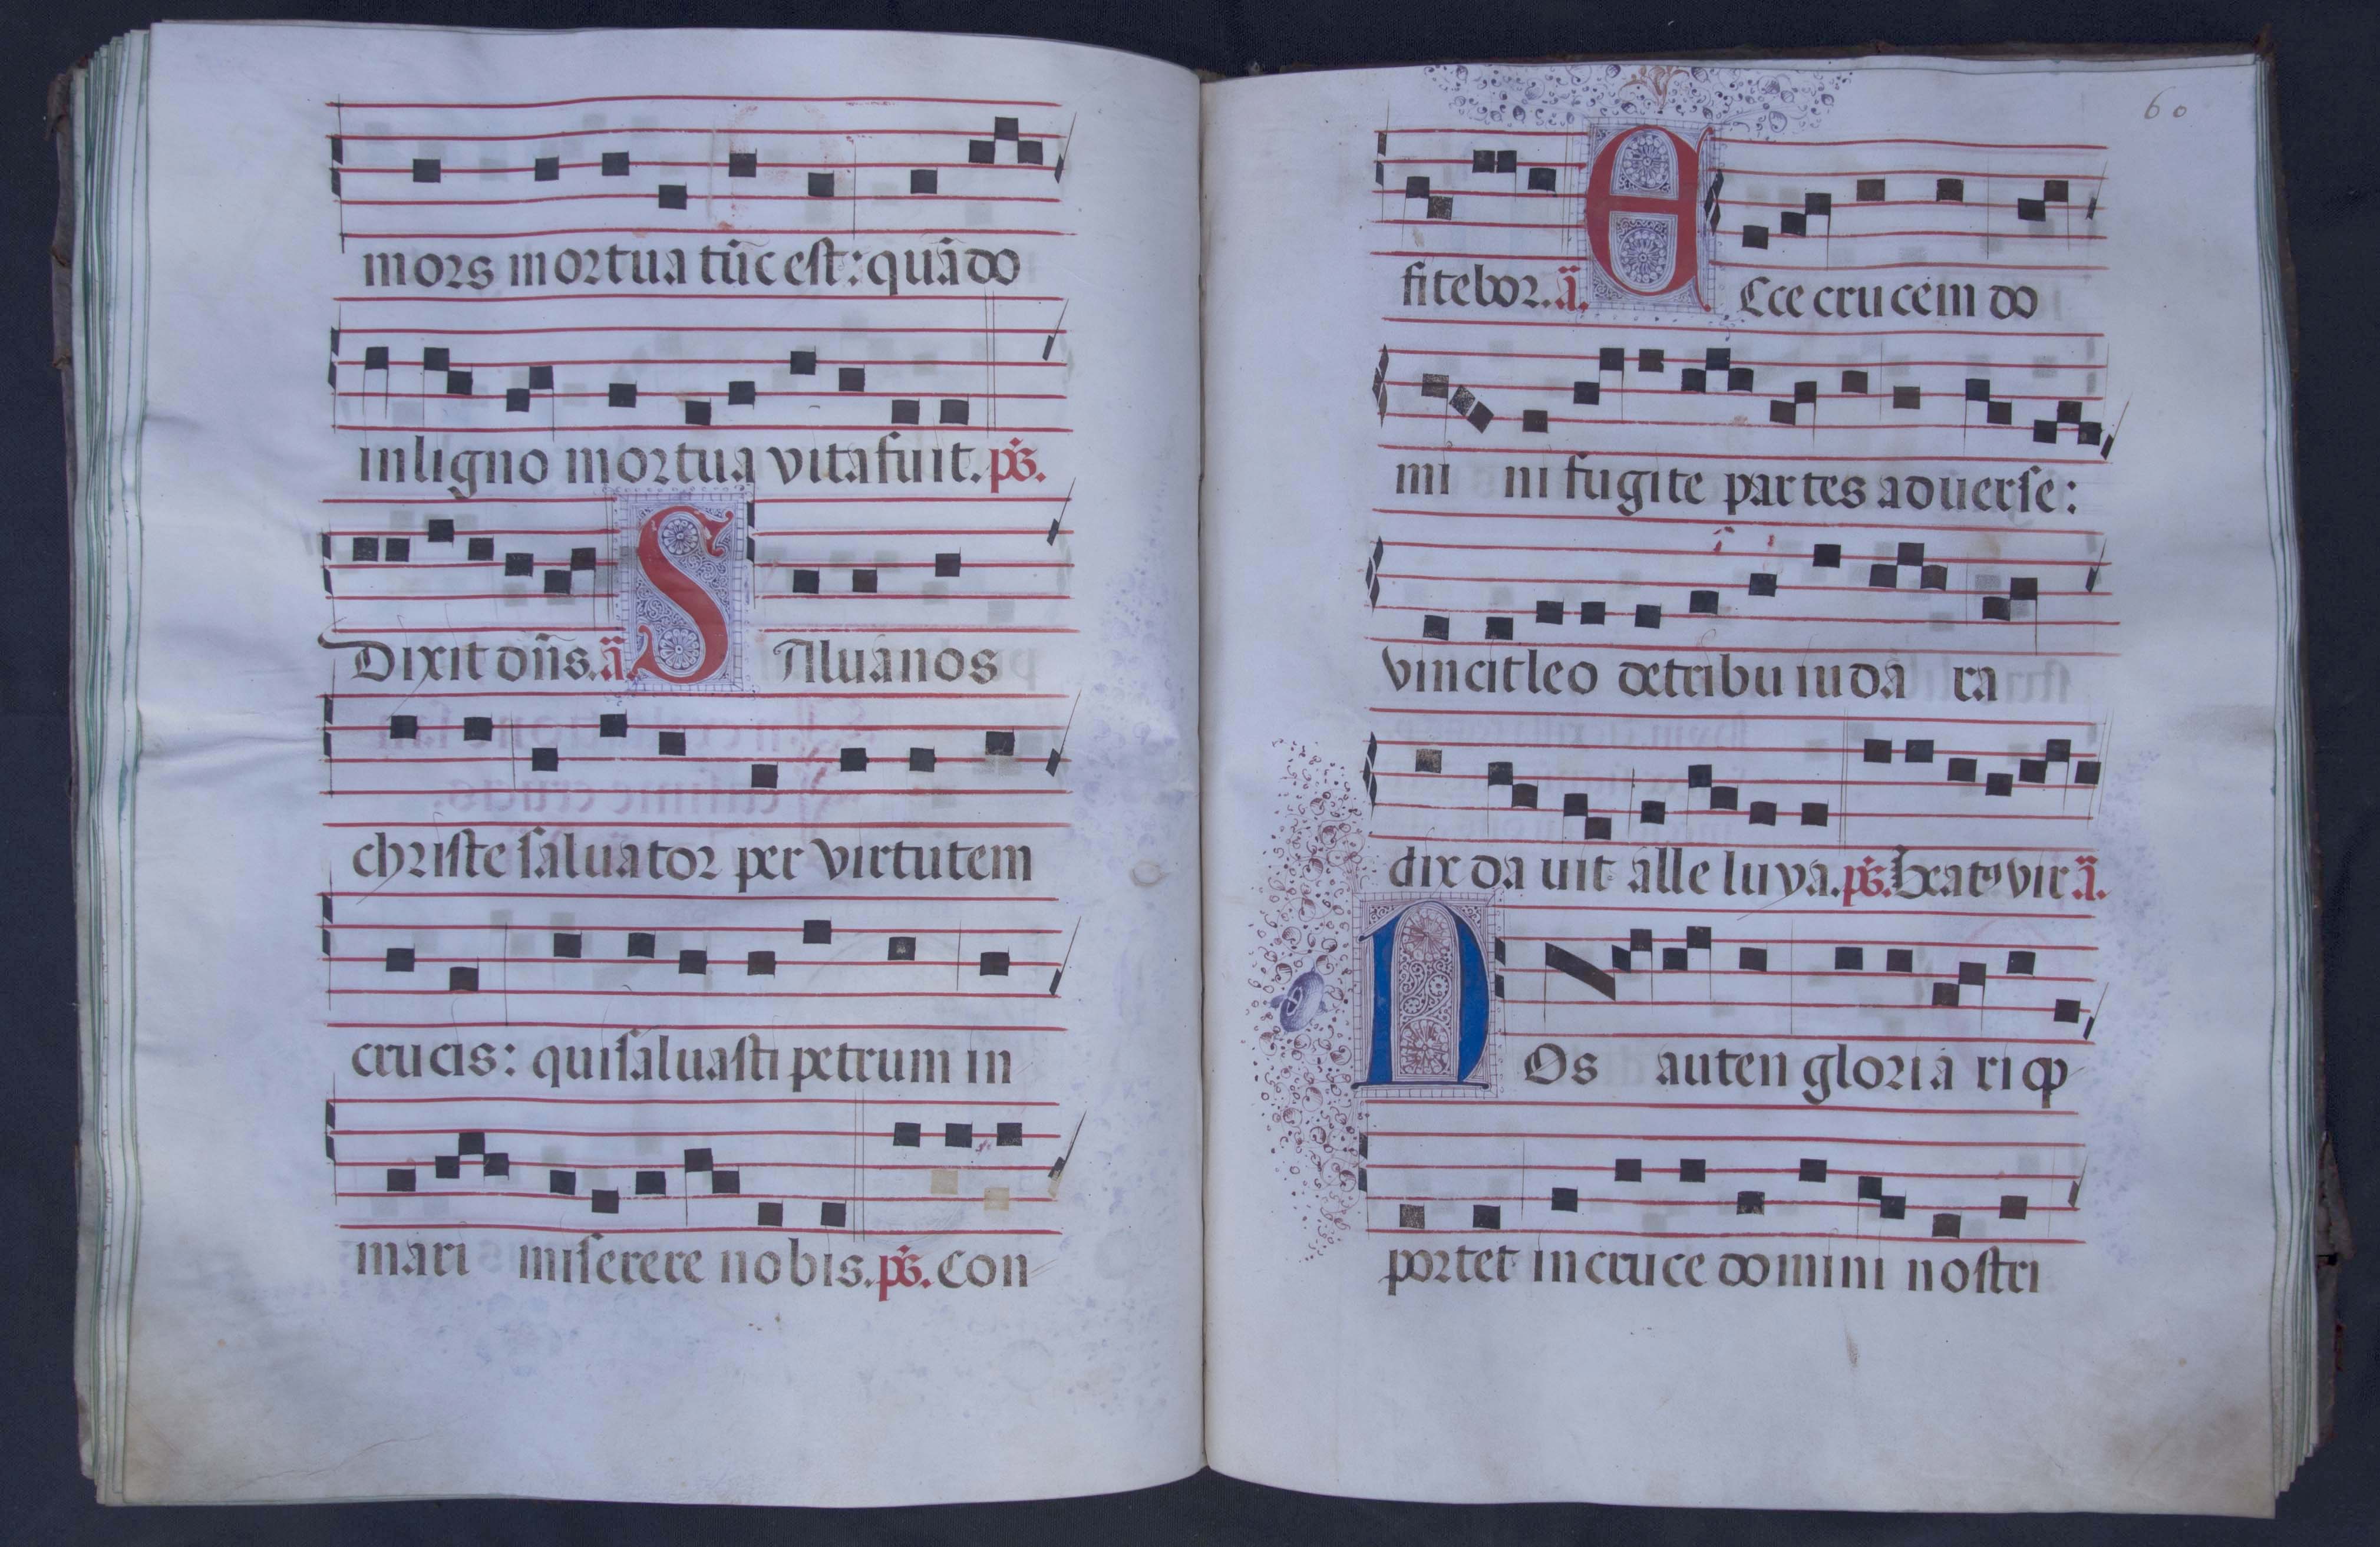 mors mortua tūc est: quādo
in ligno mortua vita fuit. ps.
Dixit dn̄s. ā. SAlua nos
christe saluator per virtutem
crucis: qui saluasti petrum in
mari miserere nobis. ps. Con
60
fitebor. ā. ECce crucem do
mi ni fugite partes aduerse:
vincit leo de tribu iuda ra
dix da uit alle luya. ps. Beatꝰ vir ā.
NOs auten gloria ri op
portet in cruce domini nostri